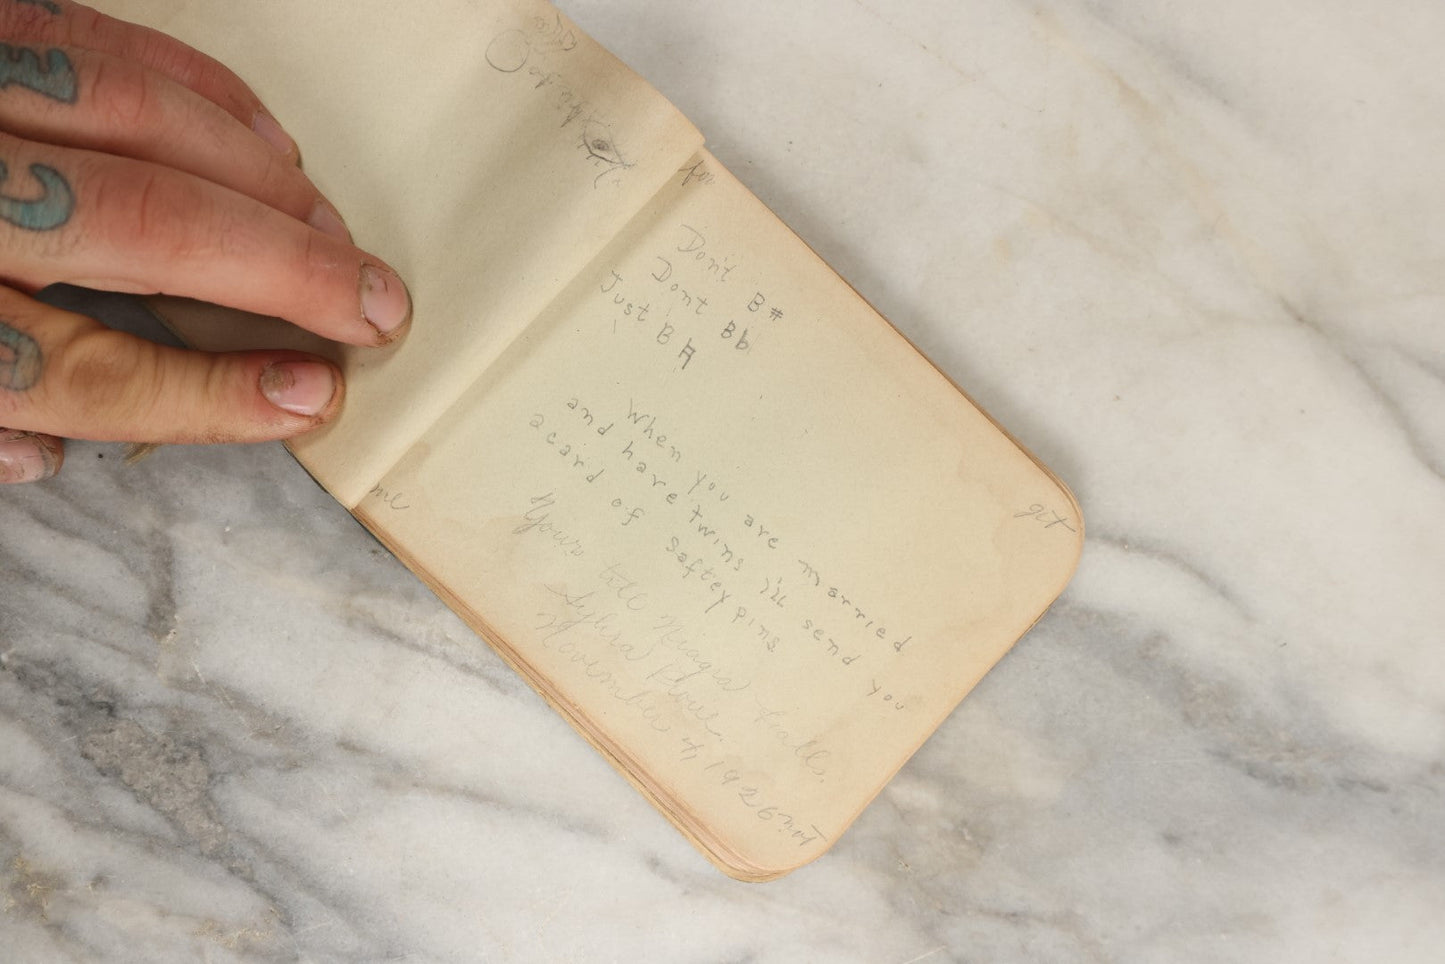 for
git
me
not
Don't B#
Dont Bb
Just B♮
When you are married
and have twins I'll send you
acard of saftey pins
Yours till Niagra Falls.
Sylvia
November 4, 1926